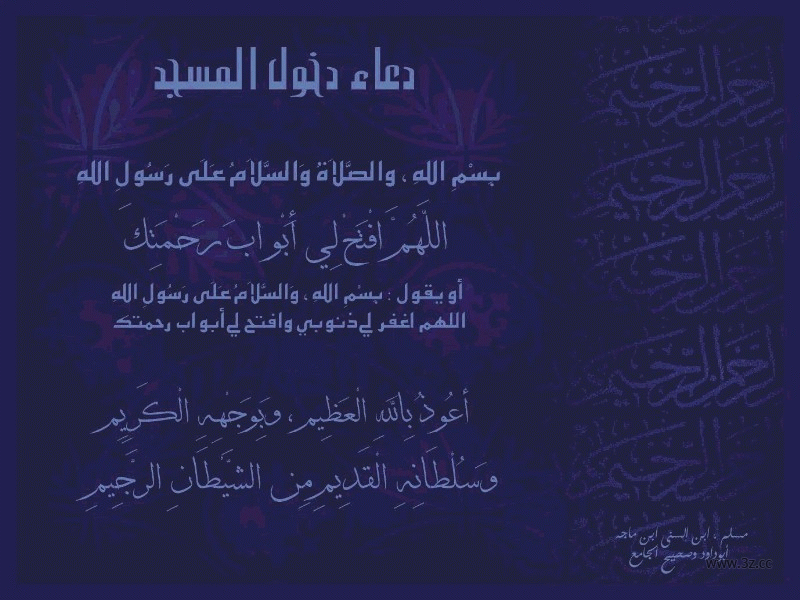 دعاء دخول المسجد
بِسْمِ اللهِ ، والصَّلاَةُ وَالسَّلاَمُ عَلَى رَسُولِ اللهِ
اللَّهُمَّ افْتَحْ لِي أَبْوابَ رَحْمَتِكَ
أو يقول : بسْمِ اللهِ ، والسَّلاَمُ عَلَى رَسُولِ اللهِ
اللهم اغفر لي ذنوبي وافتح لي أبواب رحمتك
أَعُوذُ بِاللهِ الْعَظِيمِ ، وَبِوَجْهِهِ الْكَرِيمِ
وَسُلْطَانِهِ الْقَدِيمِ مِنِ الشَّيْطَانِ الرَّجِيمِ
مسلم ، ابن السني ابن ماجه
أبوداود وصحيح الجامع
www.3z.cc